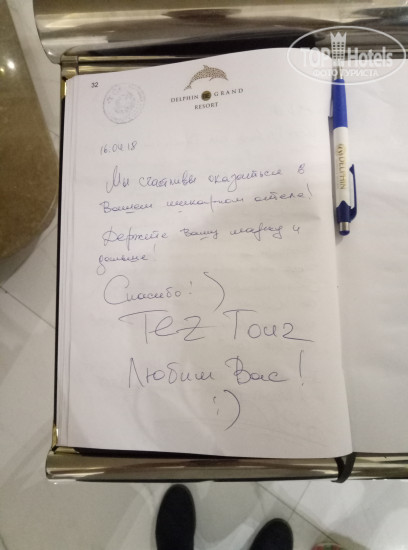 TOP Hotels
ФОТО ТУРИСТА
32
DELPHIN BE GRAND
RESORT
16.09.18
Мы счастливы оказаться в
Вашем шикарном отеле!
Держите вашу марку и
дальше!
Спасибо! :)
TEZ TOUR
Любим Вас!
:)
DELPHIN